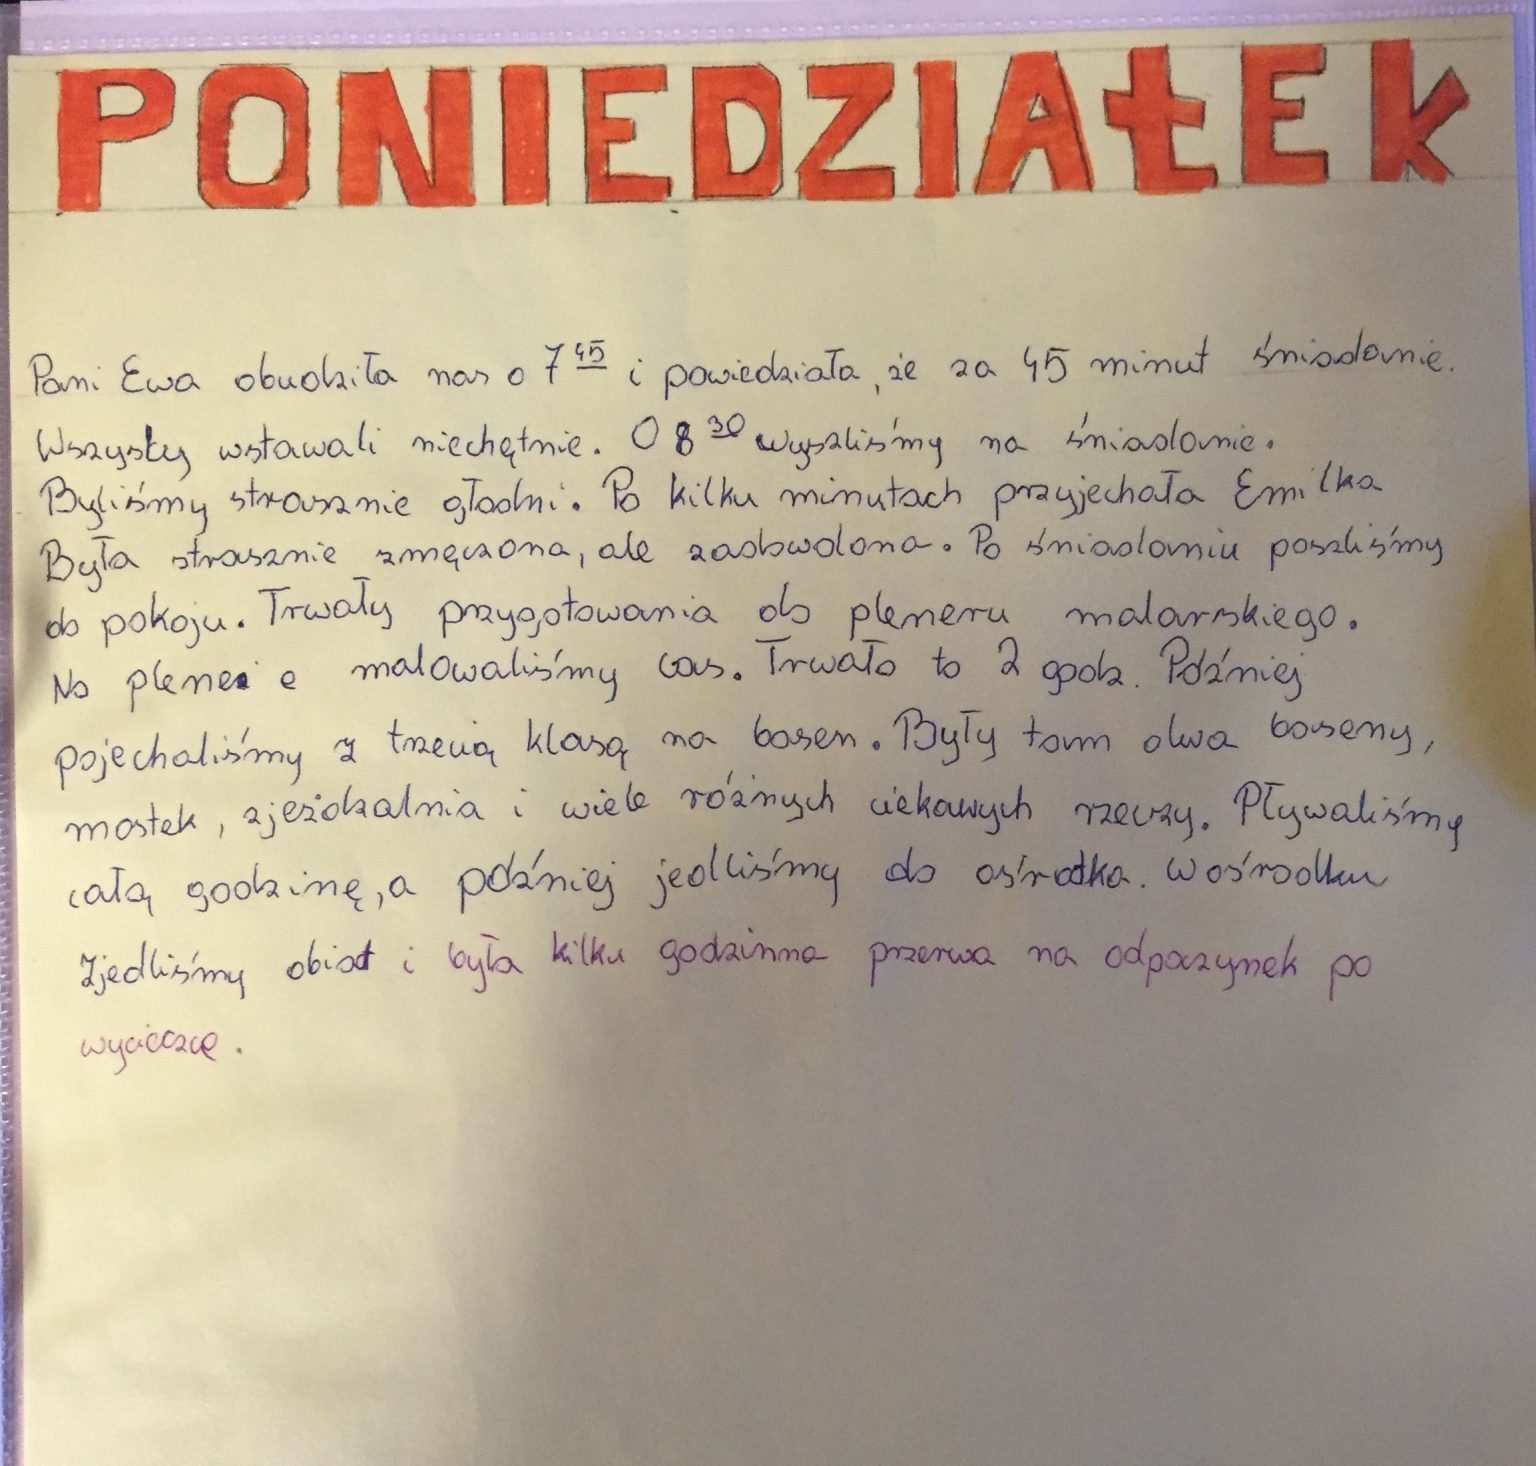 PONIEDZIAŁEK
Pani Ewa obudziła nas o 7 45 i powiedziała, że za 45 minut śniadanie.
Wszyscy wstawali niechętnie. O 8 30 wyszliśmy na śniadanie.
Byliśmy strasznie głodni. Po kilku minutach przyjechała Emilka
Była strasznie zmęczona, ale zadowolona. Po śniadaniu poszliśmy
do pokoju. Trwały przygotowania do pleneru malarskiego.
Na plenerie malowaliśmy las. Trwało to 2 godz. Później
pojechaliśmy z trzecią klasą na basen. Były tam dwa baseny,
mostek, zjeżdzalnia i wiele różnych ciekawych rzeczy. Pływaliśmy
całą godzinę, a później jedliśmy do ośrotka. W ośrodku
zjedliśmy obiat i była kilku godzinna przerwa na odpoczynek po
wycieczce.